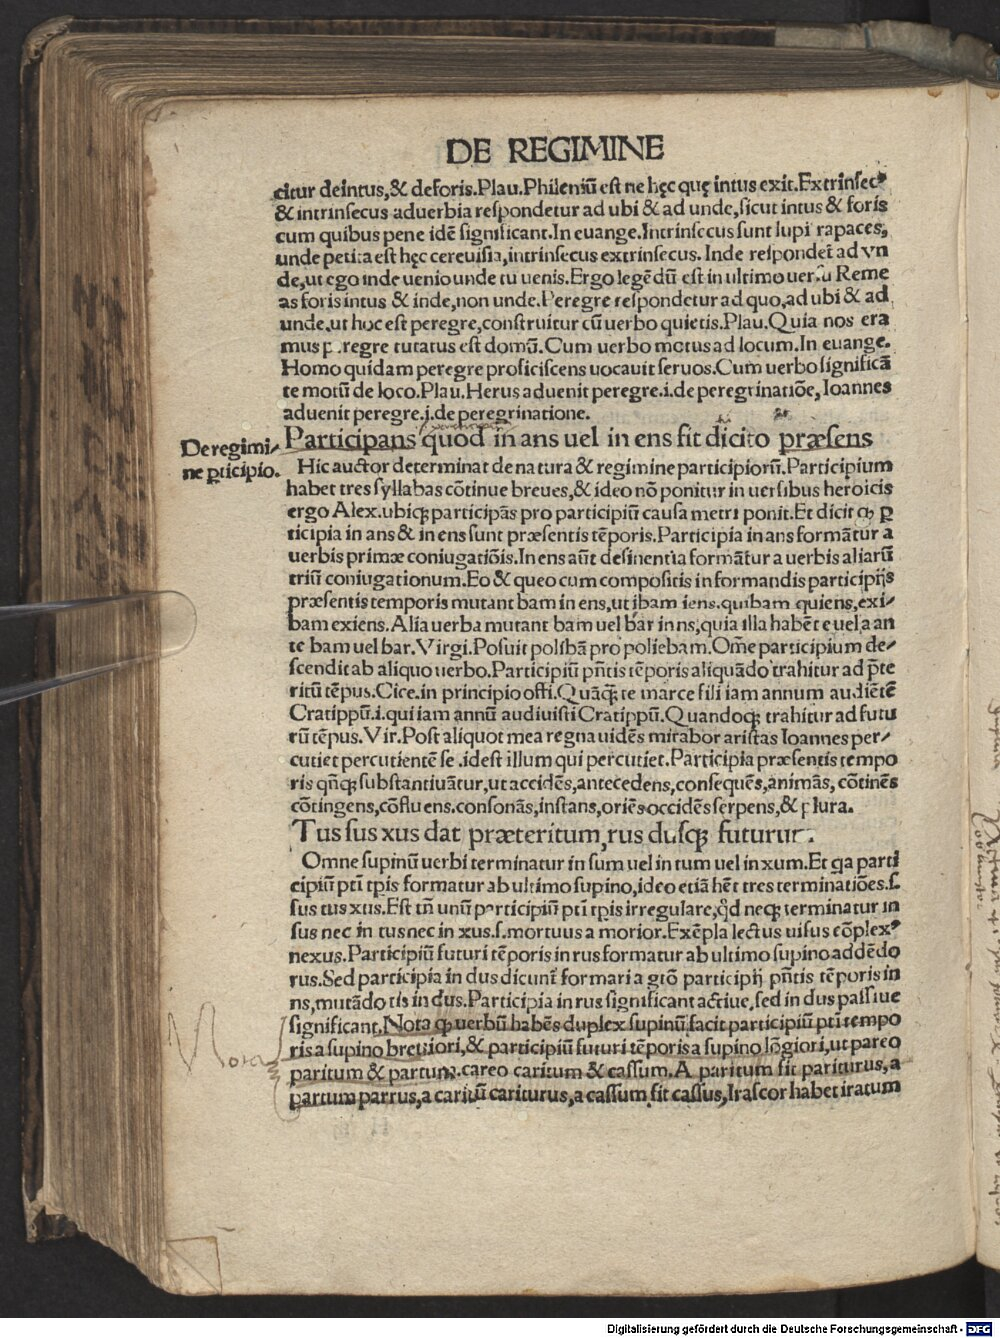 DE REGIMINE
citur deintus,& deforis.Plau.Phileniū est ne hęc quę intus exit.Extrinsecꝰ
& intrinsecus aduerbia respondetur ad ubi & ad unde,sicut intus & foris
cum quibus pene idē significant.In euange.Intrinsecus sunt lupi rapaces,
unde petita est hęc cereuisia,intrinsecus extrinsecus. Inde respondet̄ ad vn
de,ut ego inde uenio unde tu uenis.Ergo legēdū est in ultimo uersu Reme
as foris intus & inde,non unde.Peregre respondetur ad quo,ad ubi & ad
unde,ut hoc est peregre,construitur cū uerbo quietis.Plau.Quia nos era
mus peregre tutatus est domū.Cum uerbo motus ad locum.In euange.
Homo quidam peregre proficiscens uocauit seruos.Cum uerbo significā
te motū de loco.Plau.Herus aduenit peregre.i.de peregrinatiōe,Ioannes
aduenit peregre.i.de peregrinatione.
De regimi/
ne ꝑticipio.
Participans quod in ans uel in ens fit dicito præsens
Hic auctor determinat de natura & regimine participiorū.Participium
habet tres syllabas cōtinue breues,& ideo nō ponitur in uersibus heroicis
ergo Alex.ubiqꝫ participās pro participiū causa metri ponit.Et dicit ꝙ ꝑ
ticipia in ans & in ens sunt præsentis tēporis.Participia in ans formātur a
uerbis primæ coniugatiōis.In ens aūt desinentia formātur a uerbis aliarū
triū coniugationum.Eo & queo cum compositis in formandis participijs
præsentis temporis mutant bam in ens,ut ibam iens.quibam quiens,exi/
bam exiens.Alia uerba mutant bam uel bar in ns,quia illa habēt e uel a an
te bam uel bar.Virgi.Posuit polibā pro poliebam.Om̄e participium de/
scendit ab aliquo uerbo.Participiū pn̄tis tēporis aliquādo trahitur ad p̄te
ritū tēpus.Cice.in principio offi.Quāqꝫ te marce fili iam annum audiētē
Cratippū.i.qui iam annū audiuisti Cratippū.Quandoqꝫ trahitur ad futu
rū tēpus.Vir.Post aliquot mea regna uidēs mirabor aristas Ioannes per/
cutiet percutientē se .idest illum qui percutiet.Participia præsentis tempo
ris qn̄qꝫ substantiuātur,ut accidēs,antecedens,consequēs,animās,cōtinēs
cōtingens,cōfluens.consonās,instans,oriēs occidēs serpens,& plura.
Tus sus xus dat præteritum,rus dusqꝫ futurum.
Omne supinū uerbi terminatur in sum uel in tum uel in xum.Et ꝗa parti
cipiū pt̄i tp̄is formatur ab ultimo supino,ideo etiā hēt tres terminatiōes.s.
sus tus xus.Est tn̄ unū participiū pt̄i tp̄is irregulare,qd̄ neqꝫ terminatur in
sus nec in tus nec in xus.s.mortuus a morior.Exēpla lectus uisus cōplexꝰ
nexus.Participiū futuri tēporis in rus formatur ab ultimo supino addēdo
rus.Sed participia in dus dicunt̄ formari a gtō participij pn̄tis tēporis in
ns,mutādo tis in dus.Participia in rus significant actiue,sed in dus passiue
significant.Nota ꝙ uerbū habēs duplex supinū facit participiū pt̄i tempo
Nota
ris a supino breuiori,& participiū futuri tēporis a supino lōgiori,ut pareo
paritum & partum.careo caritum & cassum.A paritum fit pariturus,a
partum parrus,a caritū cariturus,a cassum fit cassus,Irascor habet iratum
Digitalisierung gefördert durch die Deutsche Forschungsgemeinschaft - DFG